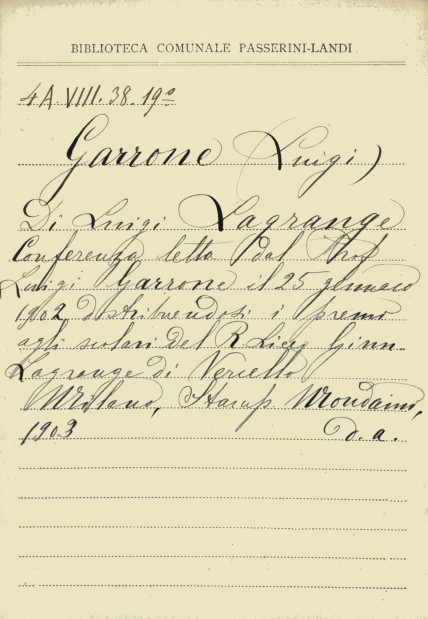 BIBLIOTECA COMUNALE PASSERINI-LANDI
4A VIII. 38. 19º
Garrone (Luigi)
Di Luigi Lagrange
Conferenza letta dal Prof
Luigi Garrone il 25 gennaio
1902 distribuendosi i premi
agli scolari del R Liceo Ginn.
Lagrange di Vercelli
Milano, Stamp Mondaini,
1903 d. a.